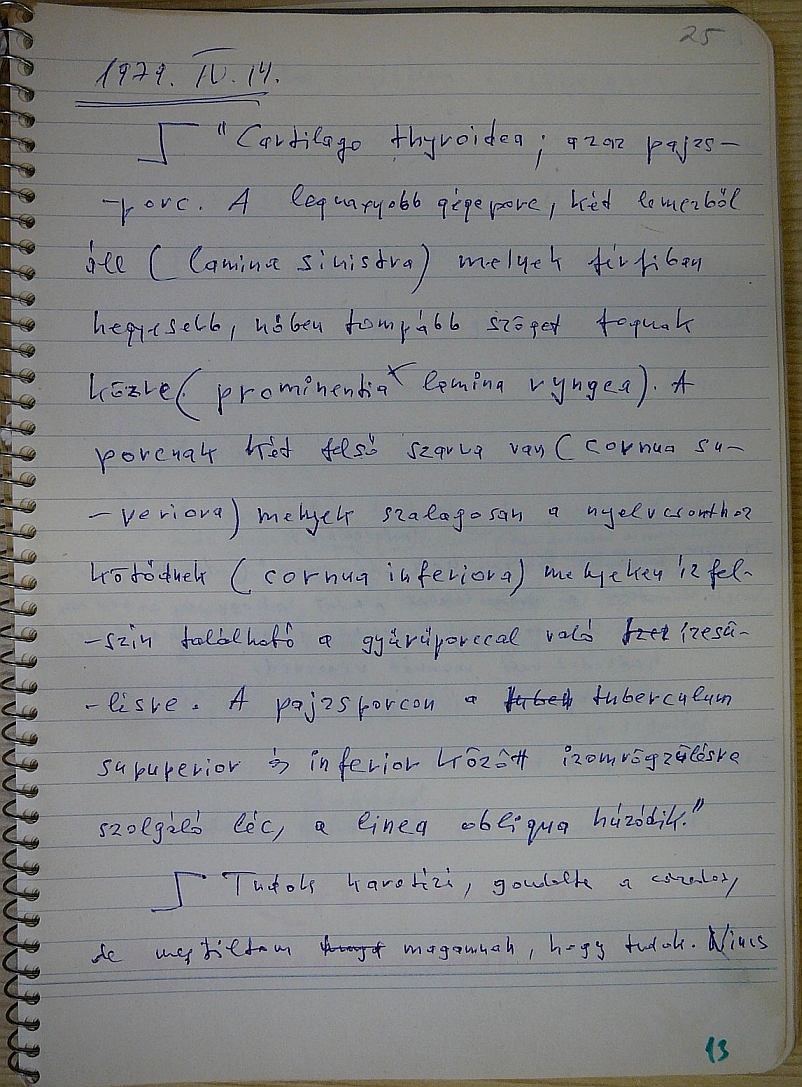 25
1979. IV. 14.
"Cartilago thyroidea; azaz pajzs-
-porc. A legnagyobb gégeporc, két lemezből
áll (lamina sinistra) melyek férfiban
hegyesebb, nőben tompább szöget fognak
közre (prominentia lamina ryngea). A
porcnak két felső szarva van (cornua su-
-periora) melyek szalagosan a nyelvcsonthoz
kötődnek (cornua inferiora) melyeken izfel-
-szín található a gyűrűporccal való izesü-
-lésre. A pajzsporcon a tuberculum
supuperior és inferior között izomrögzülésre
szolgáló léc, a linea obliqua húzódik."
Tudok karatézi, gondolta a csendes,
de megtiltom magamnak, hogy tudok. Nincs
13